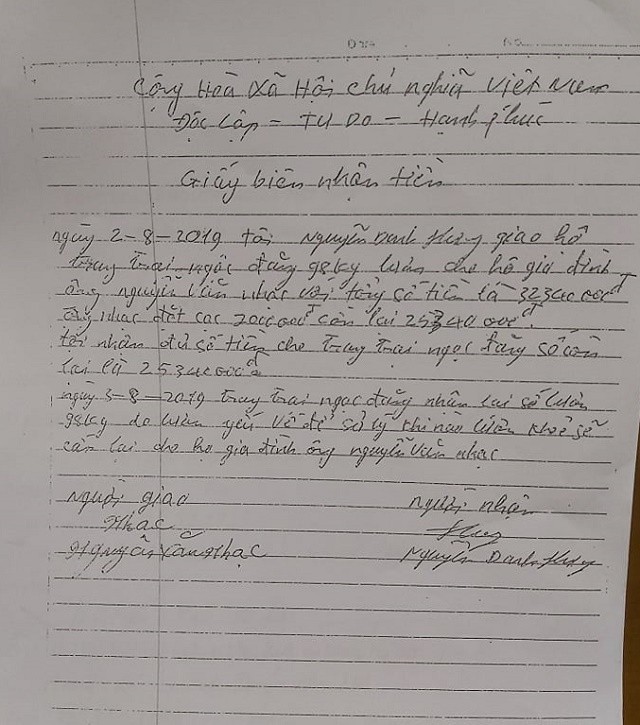 Cộng Hoà Xã Hội chủ nghĩa Việt Nam
Độc Lập - Tự Do - Hạnh Phúc
Giấy biên nhận tiền
ngày 2-8-2019 tôi Nguyễn Danh Huy giao hộ
trang trại ngọc đăng 98kg lươn cho hộ gia đình
ông nguyễn Văn nhạc với tổng số tiền là 32340000đ
ông nhạc đặt cọc 7000000đ còn lại 25340000đ.
tôi nhận đủ số tiền cho trang trại ngọc đăng số còn
lại là 25340000đ
ngày 3-8-2019 trang trại ngọc đăng nhận lại số lươn
98kg do lươn yếu về để sử lý khi nào lươn khoẻ sẽ
cân lại cho hộ gia đình ông nguyễn Văn nhạc
người giao
người nhận
nhạc
Huy
Nguyễn Văn nhạc
Nguyễn Danh Huy